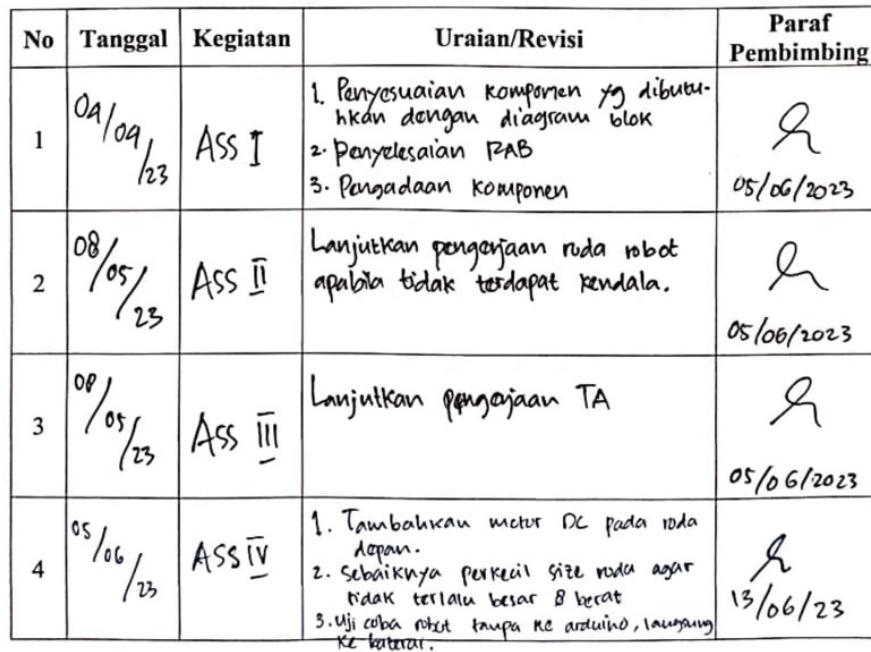 No Tanggal Kegiatan Uraian/Revisi Paraf Pembimbing
1 04/04/23 ASS I
1. Penyesuaian komponen yg dibutu-
hkan dengan diagram blok
2. Penyelesaian RAB
3. Pengadaan komponen
05/06/2023
2 08/05/23 ASS II
Lanjutkan pengerjaan roda robot
apabila tidak terdapat kendala.
05/06/2023
3 08/05/23 ASS III
Lanjutkan pengerjaan TA
05/06/2023
4 05/06/23 ASS IV
1. Tambahkan motor DC pada roda
depan.
2. Sebaiknya perkecil size roda agar
tidak terlalu besar & berat
3. Uji coba robot tanpa ke arduino, langsung
ke baterai.
13/06/23